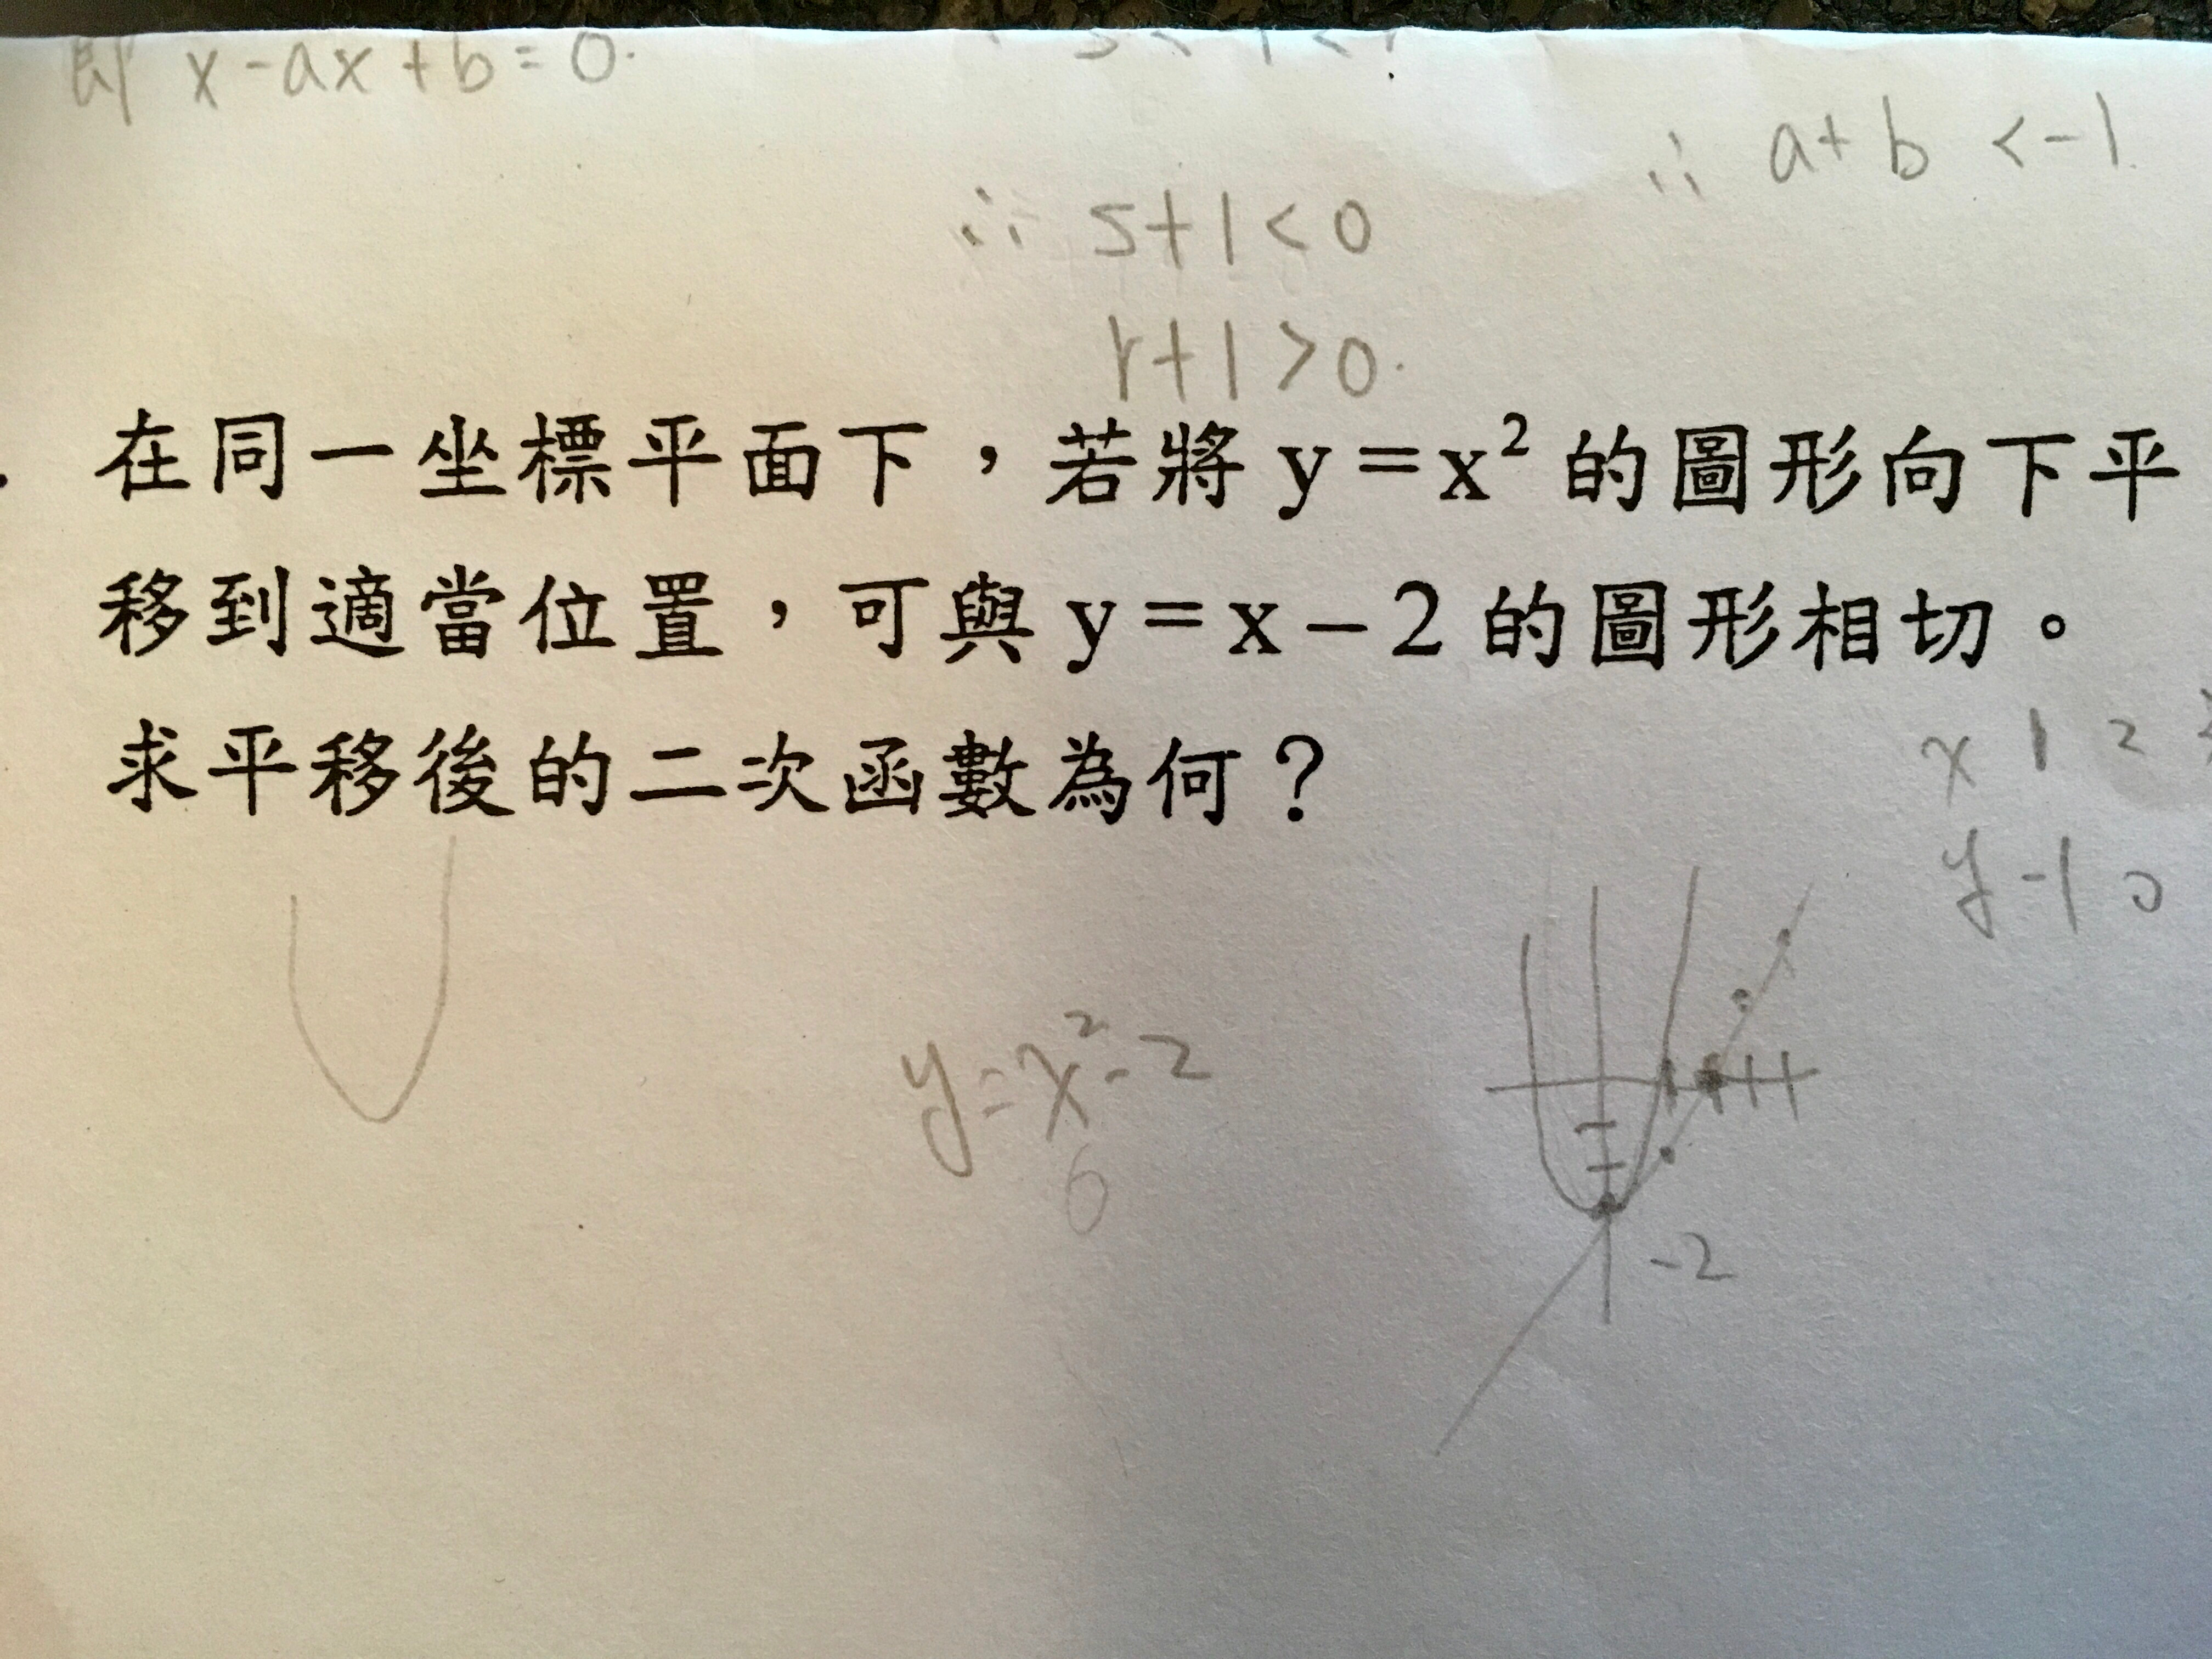 即 x-ax+b=0.
∴ a+b <-1
∴ s+1<0
r+1>0.
在同一坐標平面下，若將 y=x² 的圖形向下平
移到適當位置，可與 y=x−2 的圖形相切。
求平移後的二次函數為何？
x 1 2
y -1 0
y=x²-2
6
-2